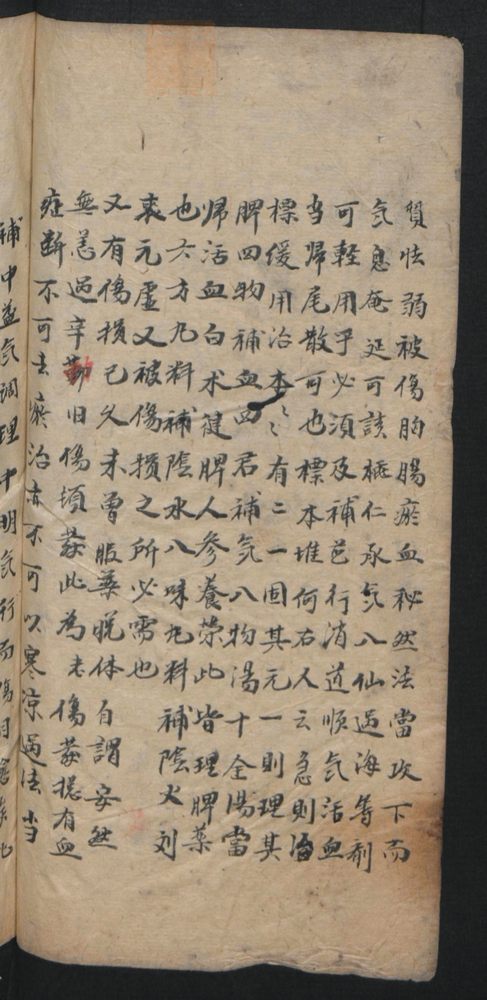 質怯弱被傷胸腸瘀血秘然法當攻下而
気息奄延可該桃仁承気八仙過海等剤
可軽用乎必須及補芭行消道順気活血
当帰尾散可也標本堆何右人云急則治
標緩用治本〻〻有二一固其元一則理其
脾四物補血四君補気八物湯十全湯當
帰活血白术健脾人參養荣此皆理脾藥
也六方九料補陰水八味九料補陰火刘
衰元虚又被傷損之所必需也
又有傷損已久未曾服藥脱体自謂安然
無恙過辛勤旧傷頃發此為老傷發揺有血
症断不可去瘀治亦不可以寒凉過法当
補中益気調理中明気行而傷自愈矣